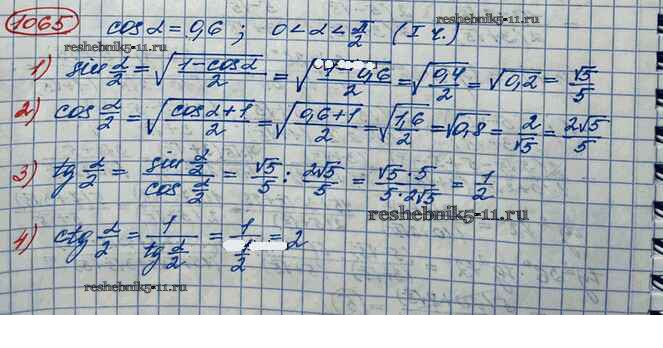 1065 cos α = 0,6 ; 0 < α < π/2 (I ч.)
reshebnik5-11.ru
1) sin α/2 = √((1-cosα)/2) = √((1-0,6)/2) = √(0,4/2) = √0,2 = √5/5
2) cos α/2 = √((cosα+1)/2) = √((0,6+1)/2) = √(1,6/2) = √0,8 = 2/√5 = 2√5/5
3) tg α/2 = (sin α/2)/(cos α/2) = √5/5 : 2√5/5 = (√5·5)/(5·2√5) = 1/2
reshebnik5-11.ru
4) ctg α/2 = 1/(tg α/2) = 1/(1/2) = 2
reshebnik5-11.ru